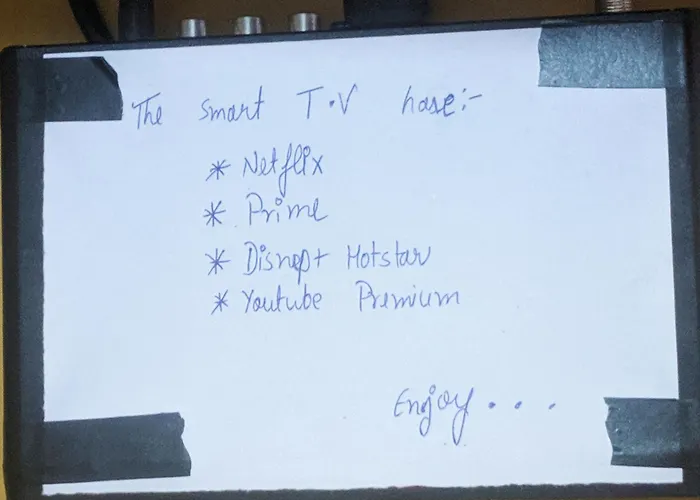 The smart T.V hase:-
* Netflix
* Prime
* Disnep+ Hotstar
* Youtube Premium
Enjoy...